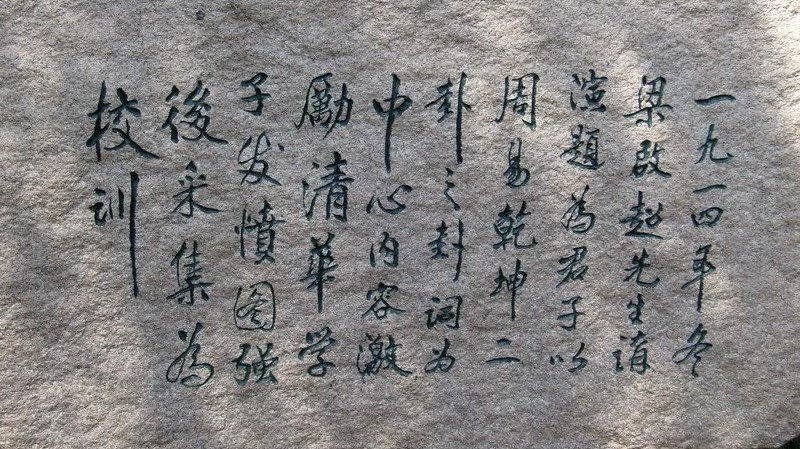 一九一四年冬
梁啟超先生講
演題為君子以
周易乾坤二
卦之卦词为
中心内容激
勵清華学
子发憤图强
後采集為
校训